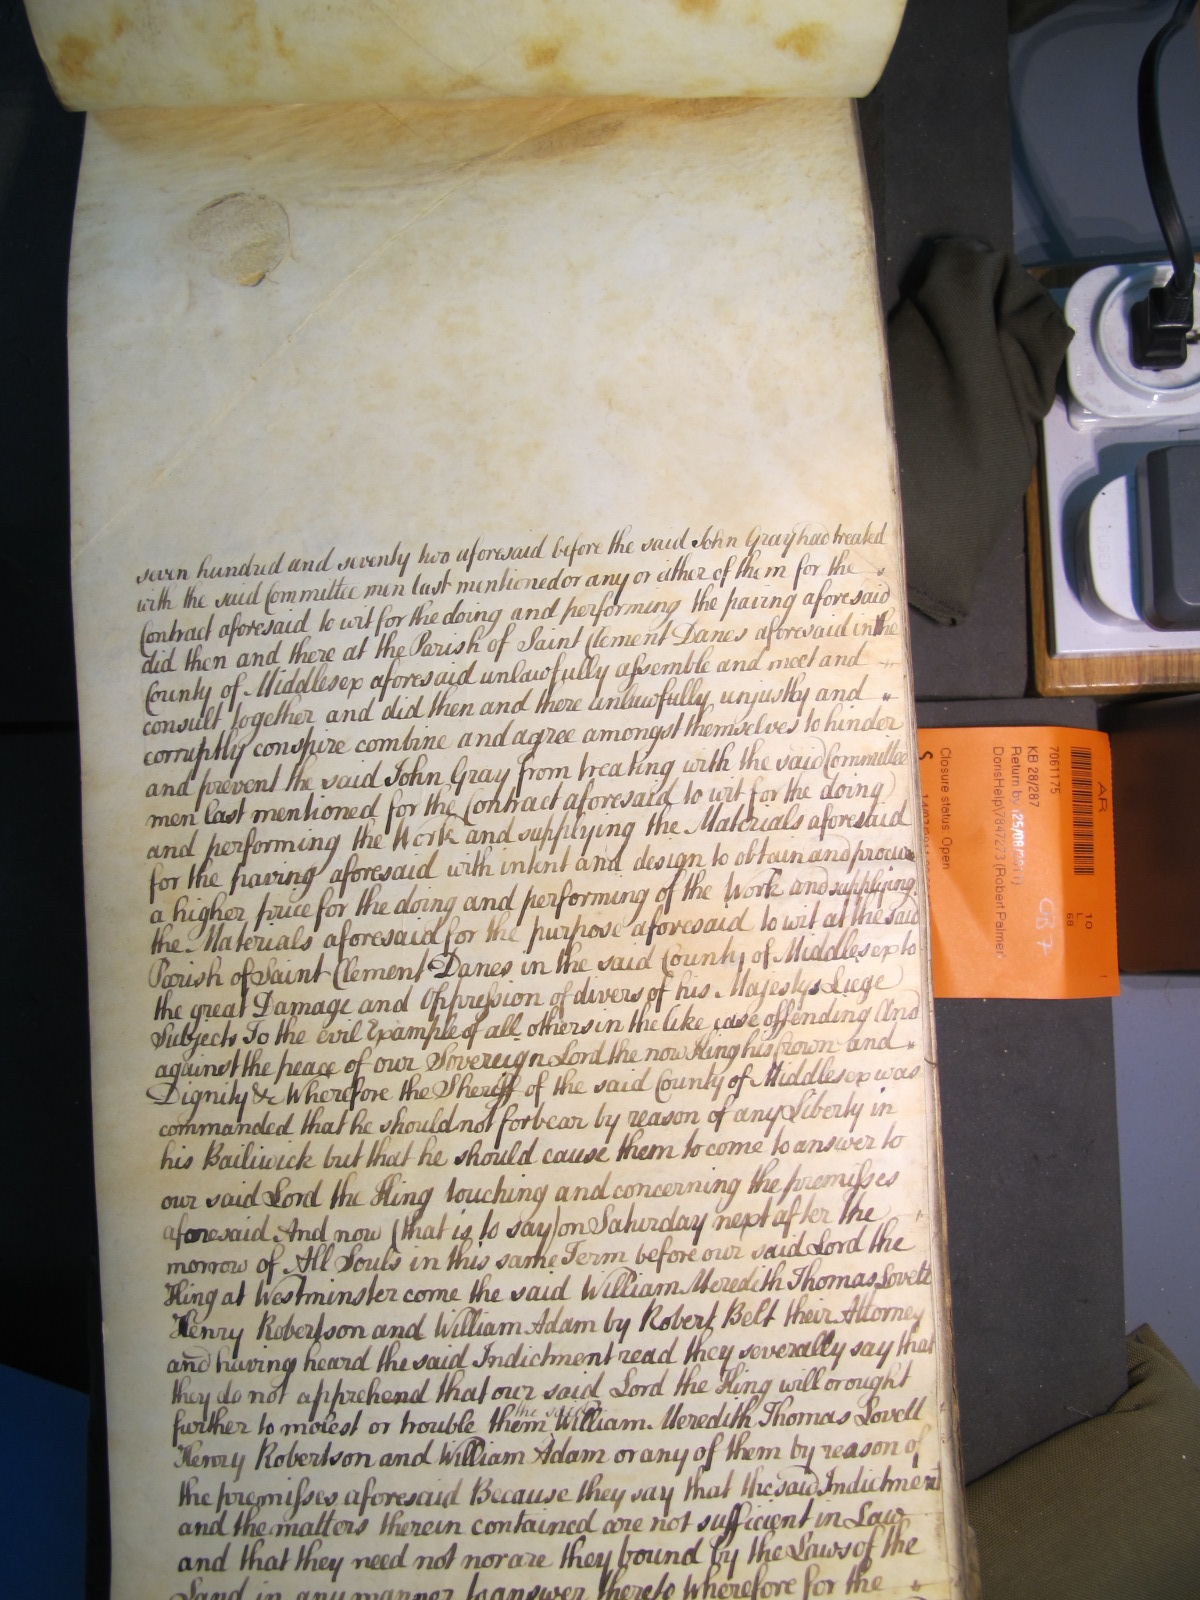 seven hundred and seventy two aforesaid before the said John Gray had treated
with the said Committee men last mentioned or any or either of them for the
Contract aforesaid to wit for the doing and performing the paving aforesaid
did then and there at the Parish of Saint Clement Danes aforesaid in the
County of Middlesex aforesaid unlawfully assemble and meet and
consult together and did then and there unlawfully unjustly and
corruptly conspire combine and agree amongst themselves to hinder
and prevent the said John Gray from treating with the said Committee
men last mentioned for the Contract aforesaid to wit for the doing
and performing the Work and supplying the Materials aforesaid
for the paving aforesaid with intent and design to obtain and procure
a higher price for the doing and performing of the Work and supplying
the Materials aforesaid for the purpose aforesaid to wit at the said
Parish of Saint Clement Danes in the said County of Middlesex to
the great Damage and Oppression of divers of his Majestys Liege
Subjects To the evil Example of all others in the like case offending And
against the peace of our Sovereign Lord the now King his Crown and
Dignity &c Wherefore the Sheriff of the said County of Middlesex was
commanded that he should not forbear by reason of any Liberty in
his Bailiwick but that he should cause them to come to answer to
our said Lord the King touching and concerning the premisses
aforesaid And now (that is to say) on Saturday next after the
morrow of All Souls in this same Term before our said Lord the
King at Westminster come the said William Meredith Thomas Lovell
Henry Robertson and William Adam by Robert Belt their Attorney
and having heard the said Indictment read they severally say that
they do not apprehend that our said Lord the King will or ought
further to molest or trouble them the said William Meredith Thomas Lovell
Henry Robertson and William Adam or any of them by reason of
the premisses aforesaid Because they say that the said Indictment
and the matters therein contained are not sufficient in Law
and that they need not nor are they bound by the Laws of the
Land in any manner to answer thereto Wherefore for the
AR
7061175
KB 28/287
Return by (25/08/2011)
DorisHelp/7847273 (Robert Palmer)
Closure status: Open
S
10
L
68